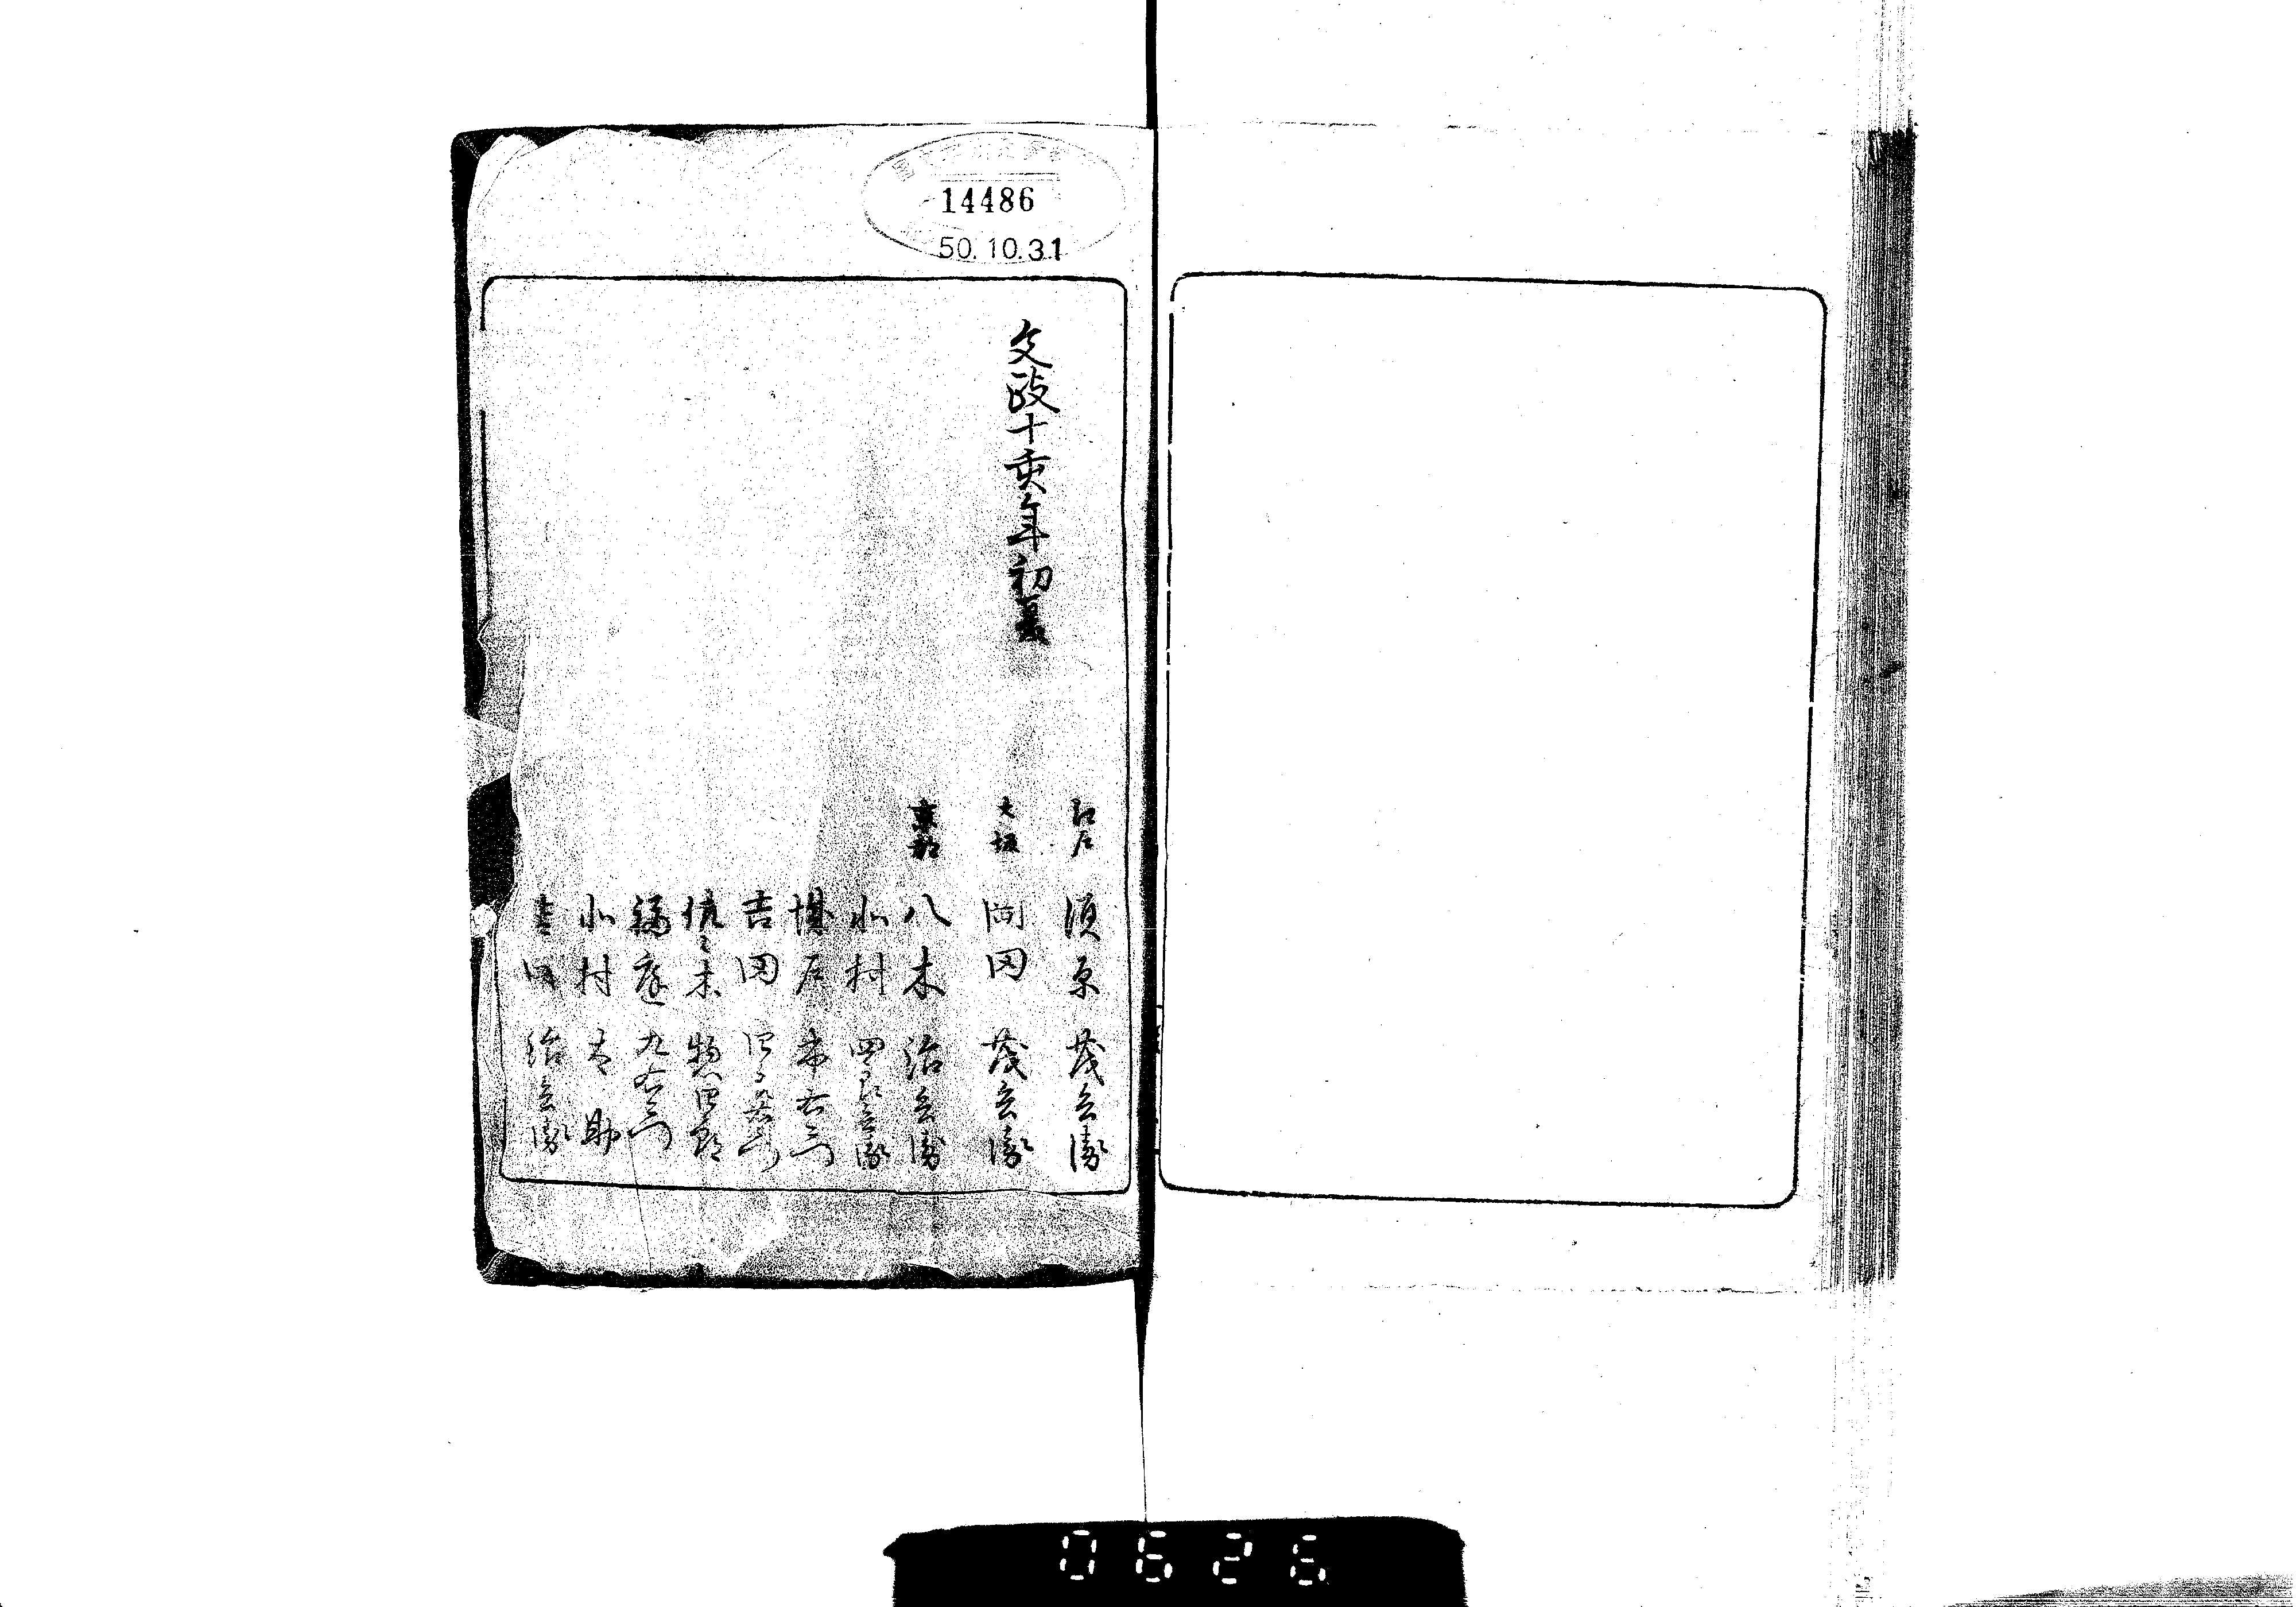 14486
50.10.31
文政十亥年初夏
江戸 須原茂兵衛
大坂 岡田茂兵衛
京都 八木治兵衛
北村四郎兵衛
堺屋市右衛門
吉田四郎右衛門
佐々木惣四郎
北村太助
吉田治兵衛
0626